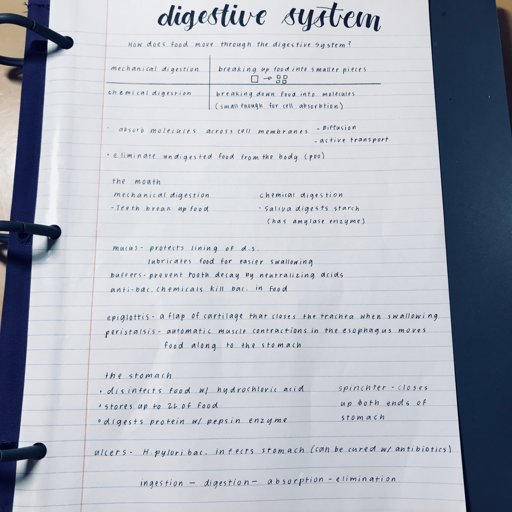 digestive system
How does food move through the digestive system?
mechanical digestion breaking up food into smaller pieces
chemical digestion breaking down food into molecules
(small enough for cell absorbtion)
· absorb molecules across cell membranes - Diffusion
- active transport
· eliminate undigested food from the body (poo)
the mouth
mechanical digestion chemical digestion
- Teeth break up food · Saliva digests starch
(has amylase enzyme)
mucus - protects lining of d.s.
lubricates food for easier swallowing
buffers - prevent tooth decay by neutralizing acids
anti-bac. chemicals kill bac. in food
epiglottis - a flap of cartilage that closes the trachra when swallowing
peristalsis - automatic muscle contractions in the esophagus moves
food along to the stomach
the stomach
• disinfects food w/ hydrochloric acid spinchter - closes
• stores up to 2L of food up both ends of
• digests protein w/ pepsin enzyme stomach
ulcers - H. pylori bac. infects stomach (can be cured w/ antibiotics)
ingestion - digestion - absorption - elimination